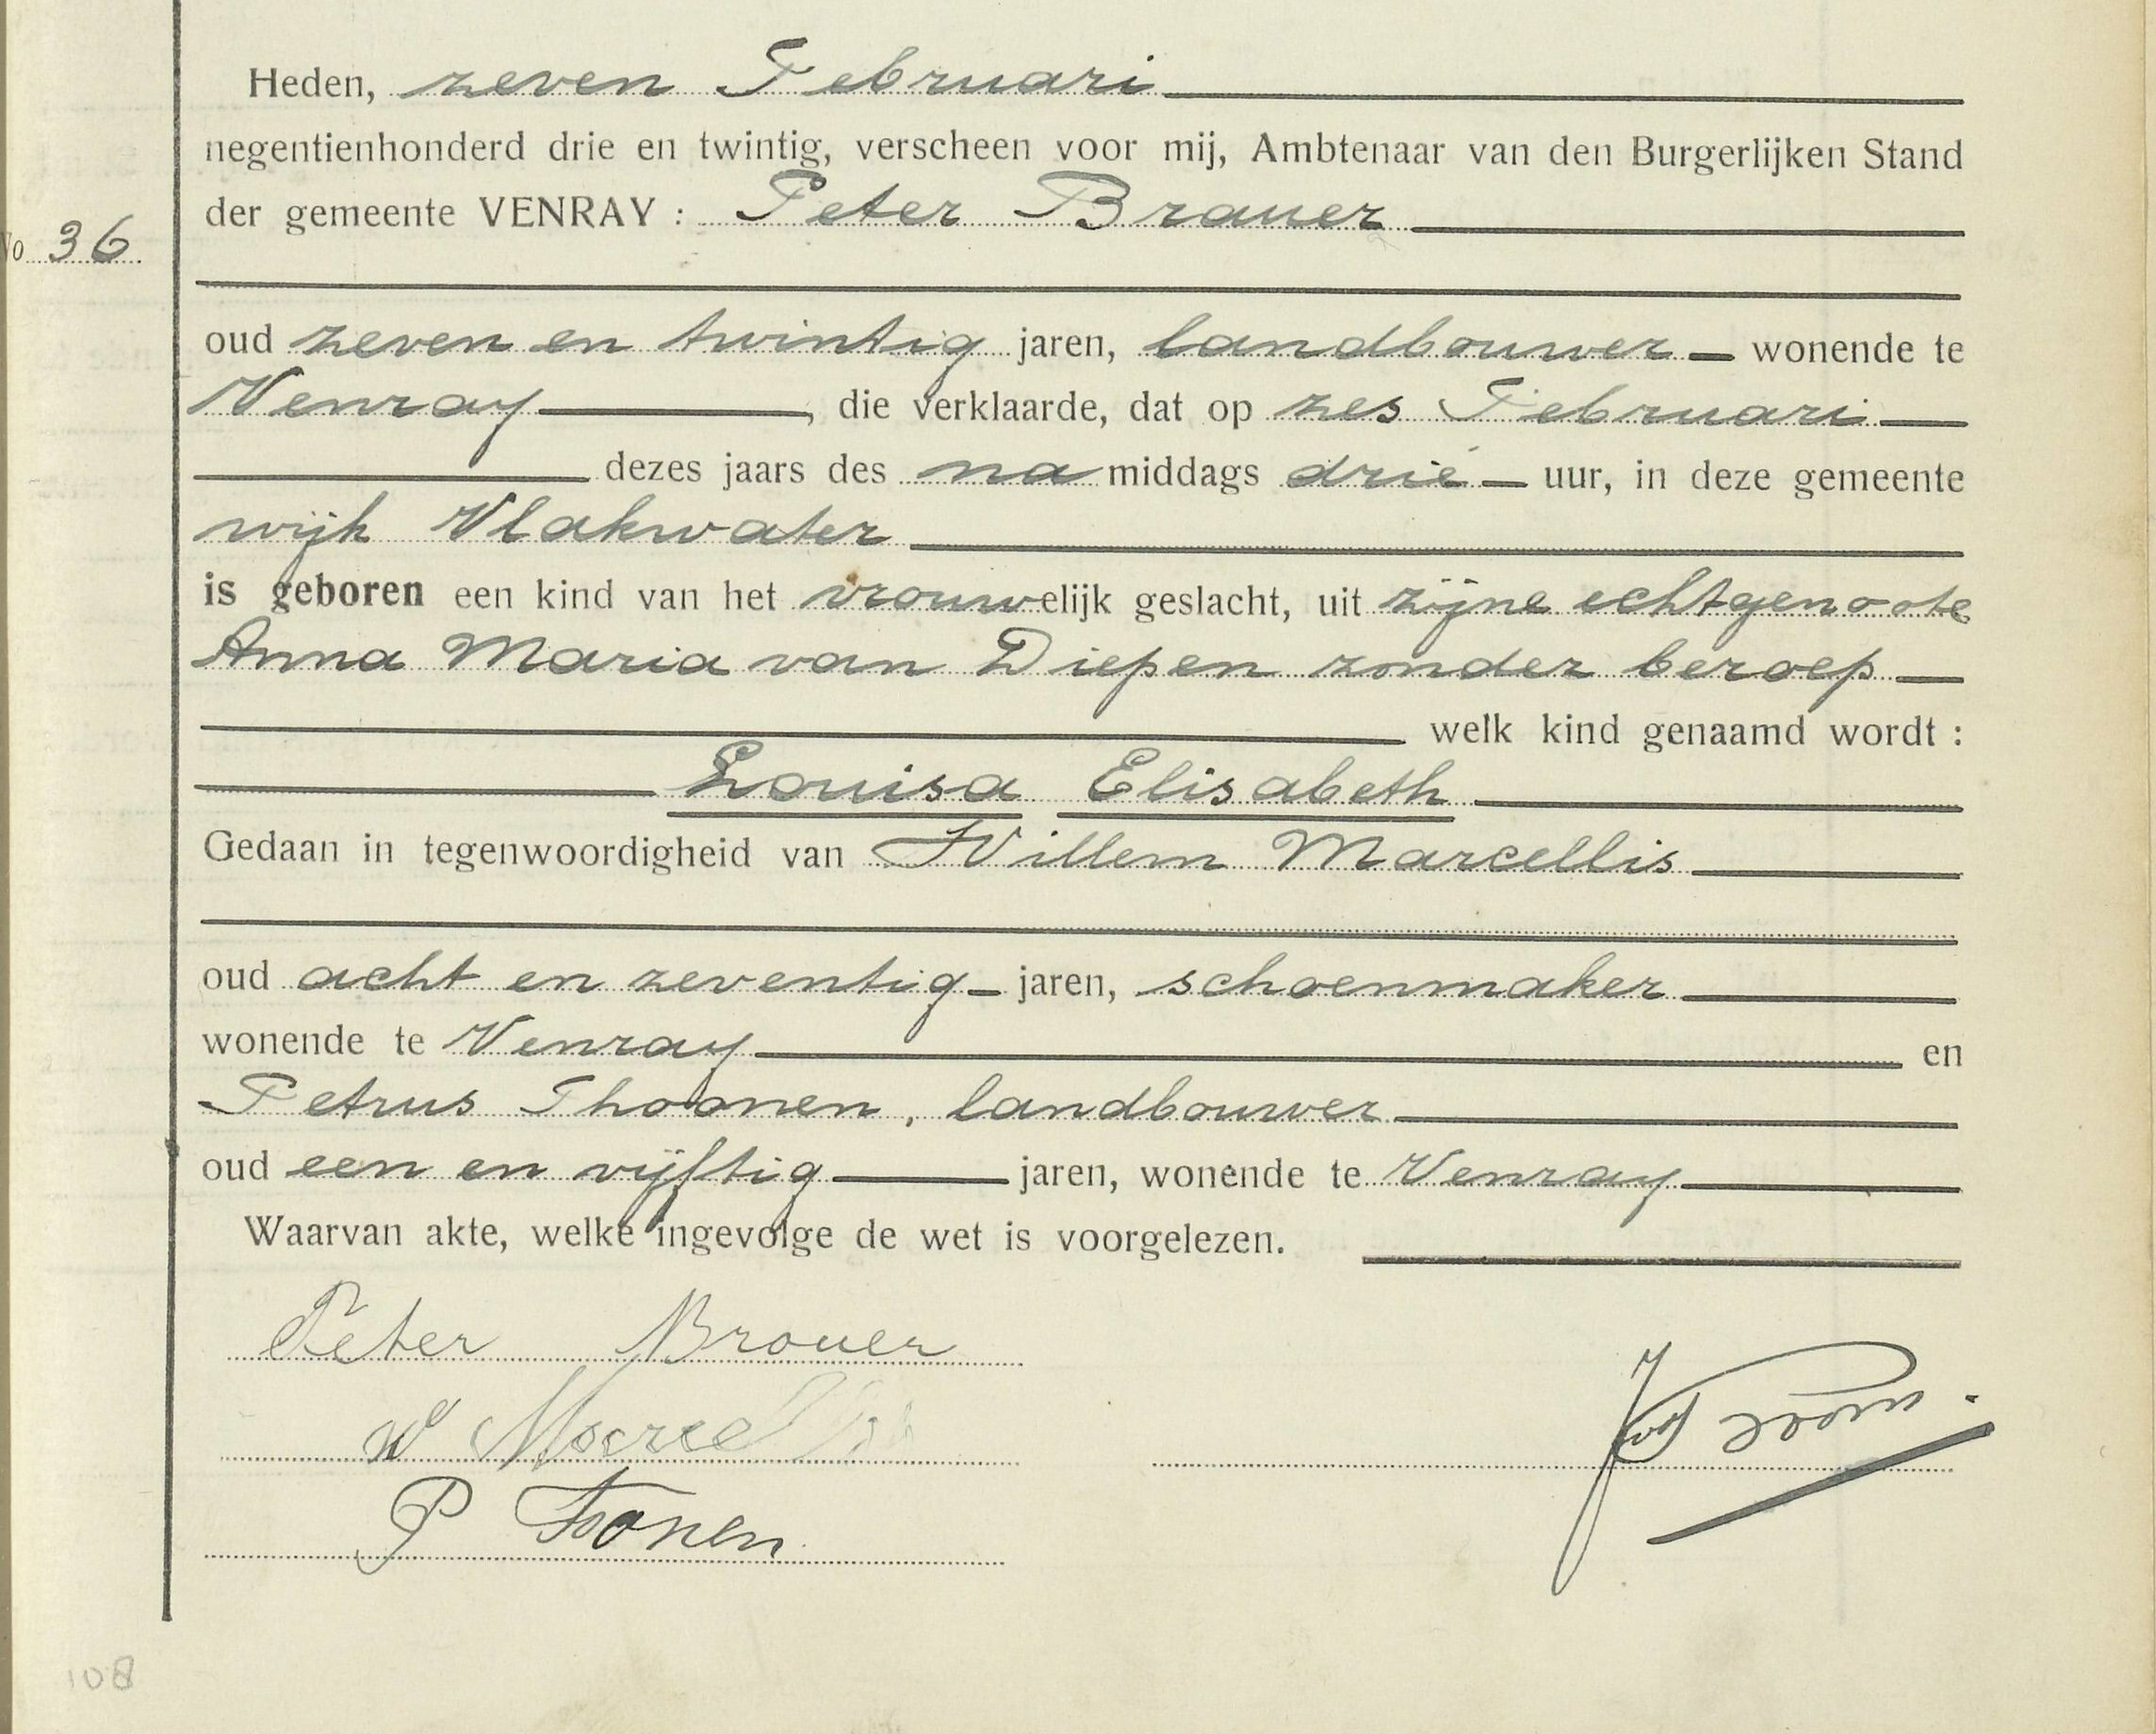 Heden, zeven Februari
negentienhonderd drie en twintig, verscheen voor mij, Ambtenaar van den Burgerlijken Stand
der gemeente VENRAY : Peter Brauer
No 36
oud zeven en twintig jaren, landbouwer wonende te
Venray, die verklaarde, dat op zes Februari
dezes jaars des na middags drie uur, in deze gemeente
wijk Vlakwater
is geboren een kind van het vrouwelijk geslacht, uit zijne echtgenoote
Anna Maria van Diepen zonder beroep
welk kind genaamd wordt :
Louisa Elisabeth
Gedaan in tegenwoordigheid van Willem Marcellis
oud acht en zeventig jaren, schoenmaker
wonende te Venray en
Petrus Thoonen, landbouwer
oud een en vijftig jaren, wonende te Venray
Waarvan akte, welke ingevolge de wet is voorgelezen.
Peter Brouer
W Marcellis
P Toonen
108